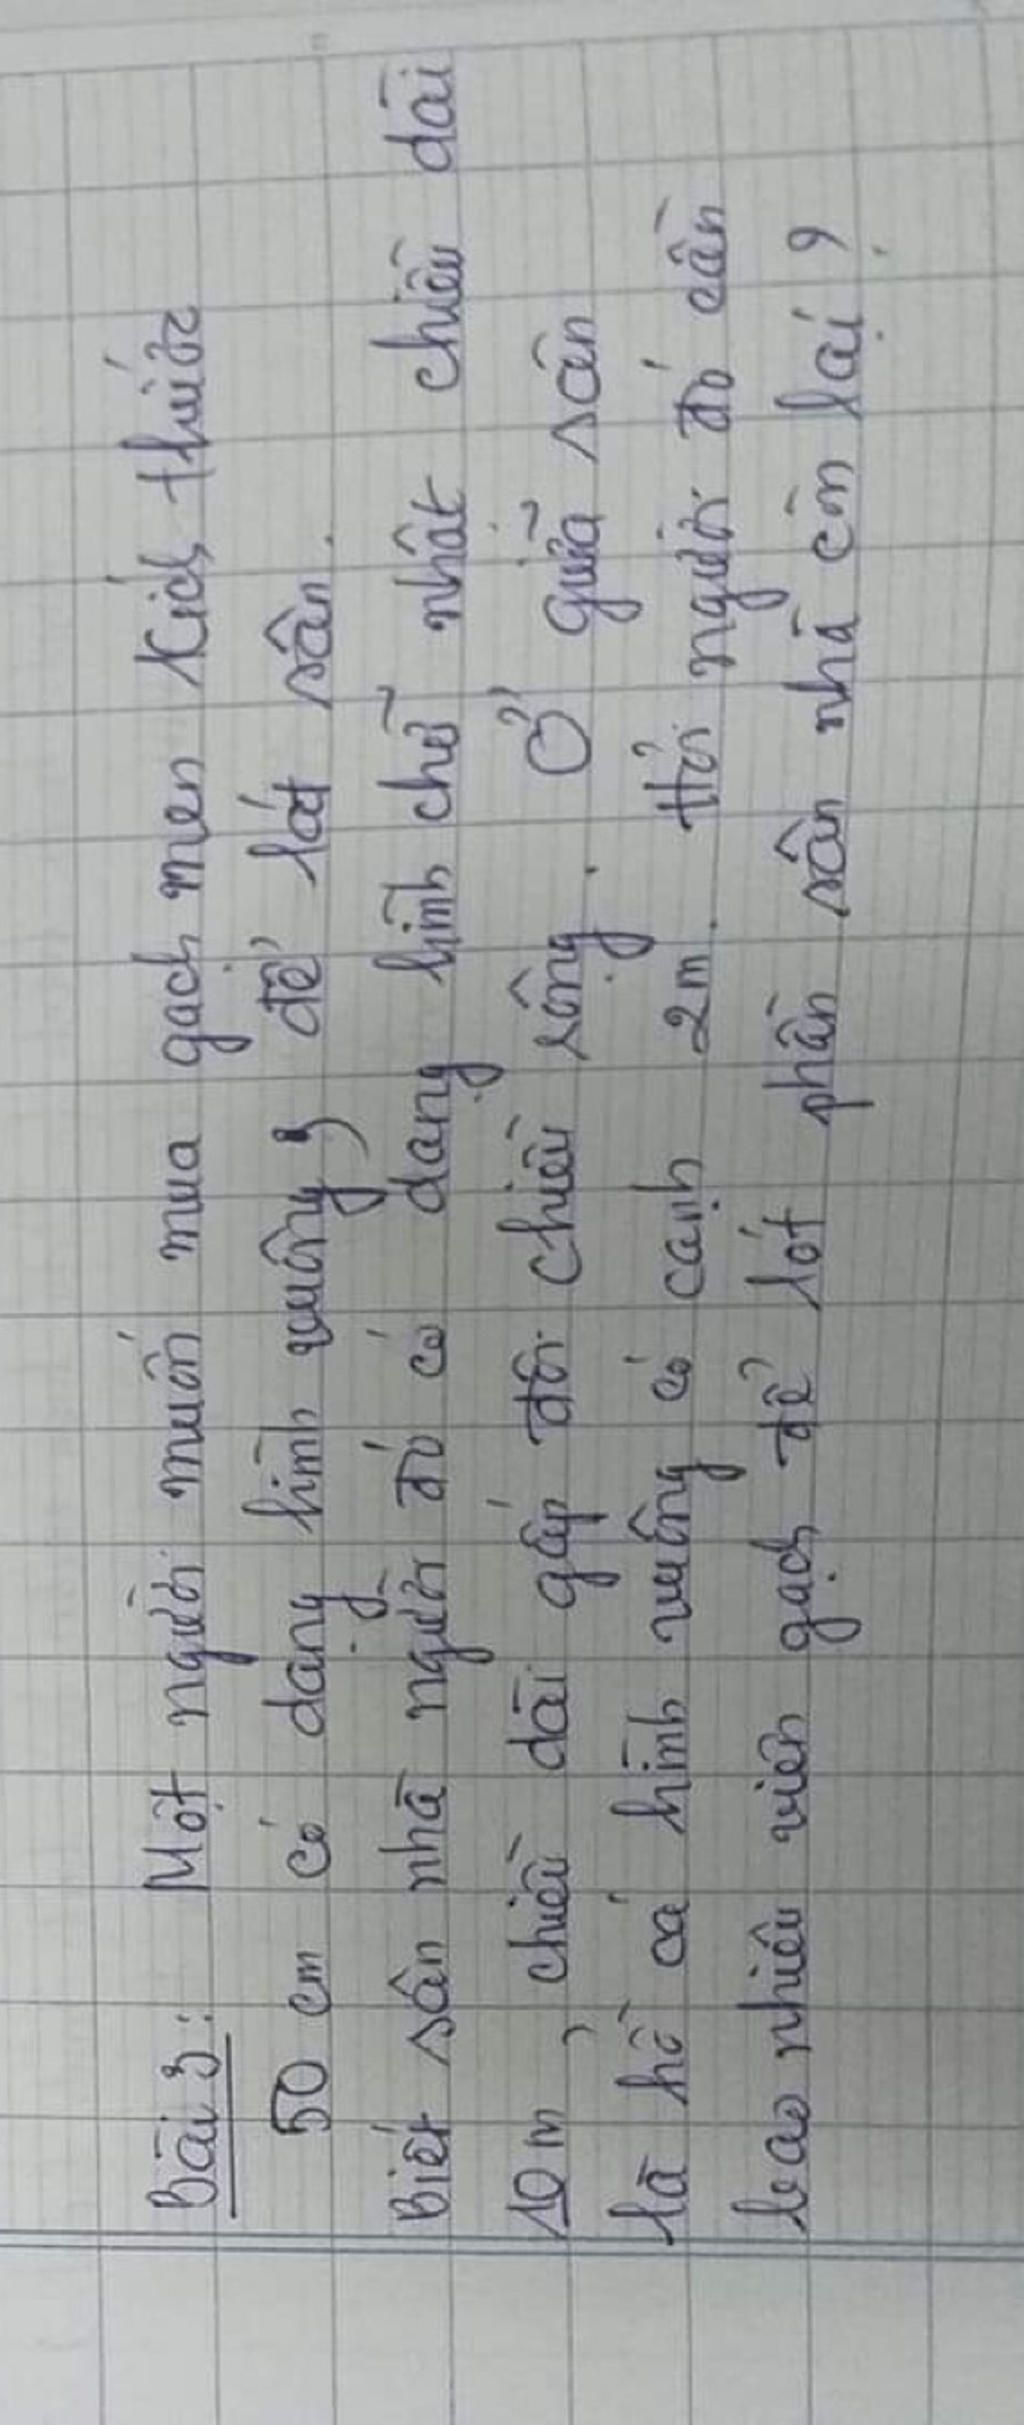 Bài 3: Một người muốn mua gạch men kích thước
50 cm có dạng hình vuông, để lát sân.
Biết sân nhà người đó có dạng hình chữ nhật chiều dài
10m, chiều dài gấp đôi chiều rộng. Ở giữa sân
là hồ cá hình vuông có cạnh 2m. Hỏi người đó cần
bao nhiêu viên gạch để lót phần sân nhà còn lại?